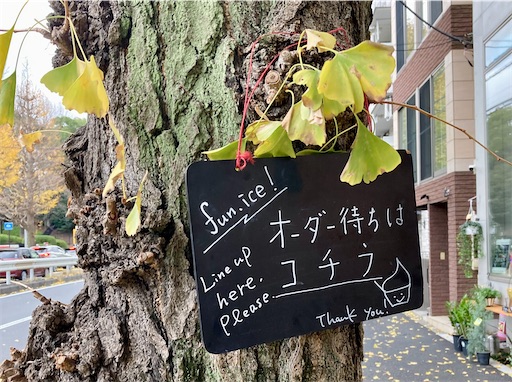 fun.ice!
オーダー待ちは
コチラ
Line up
here,
please.
Thank you!